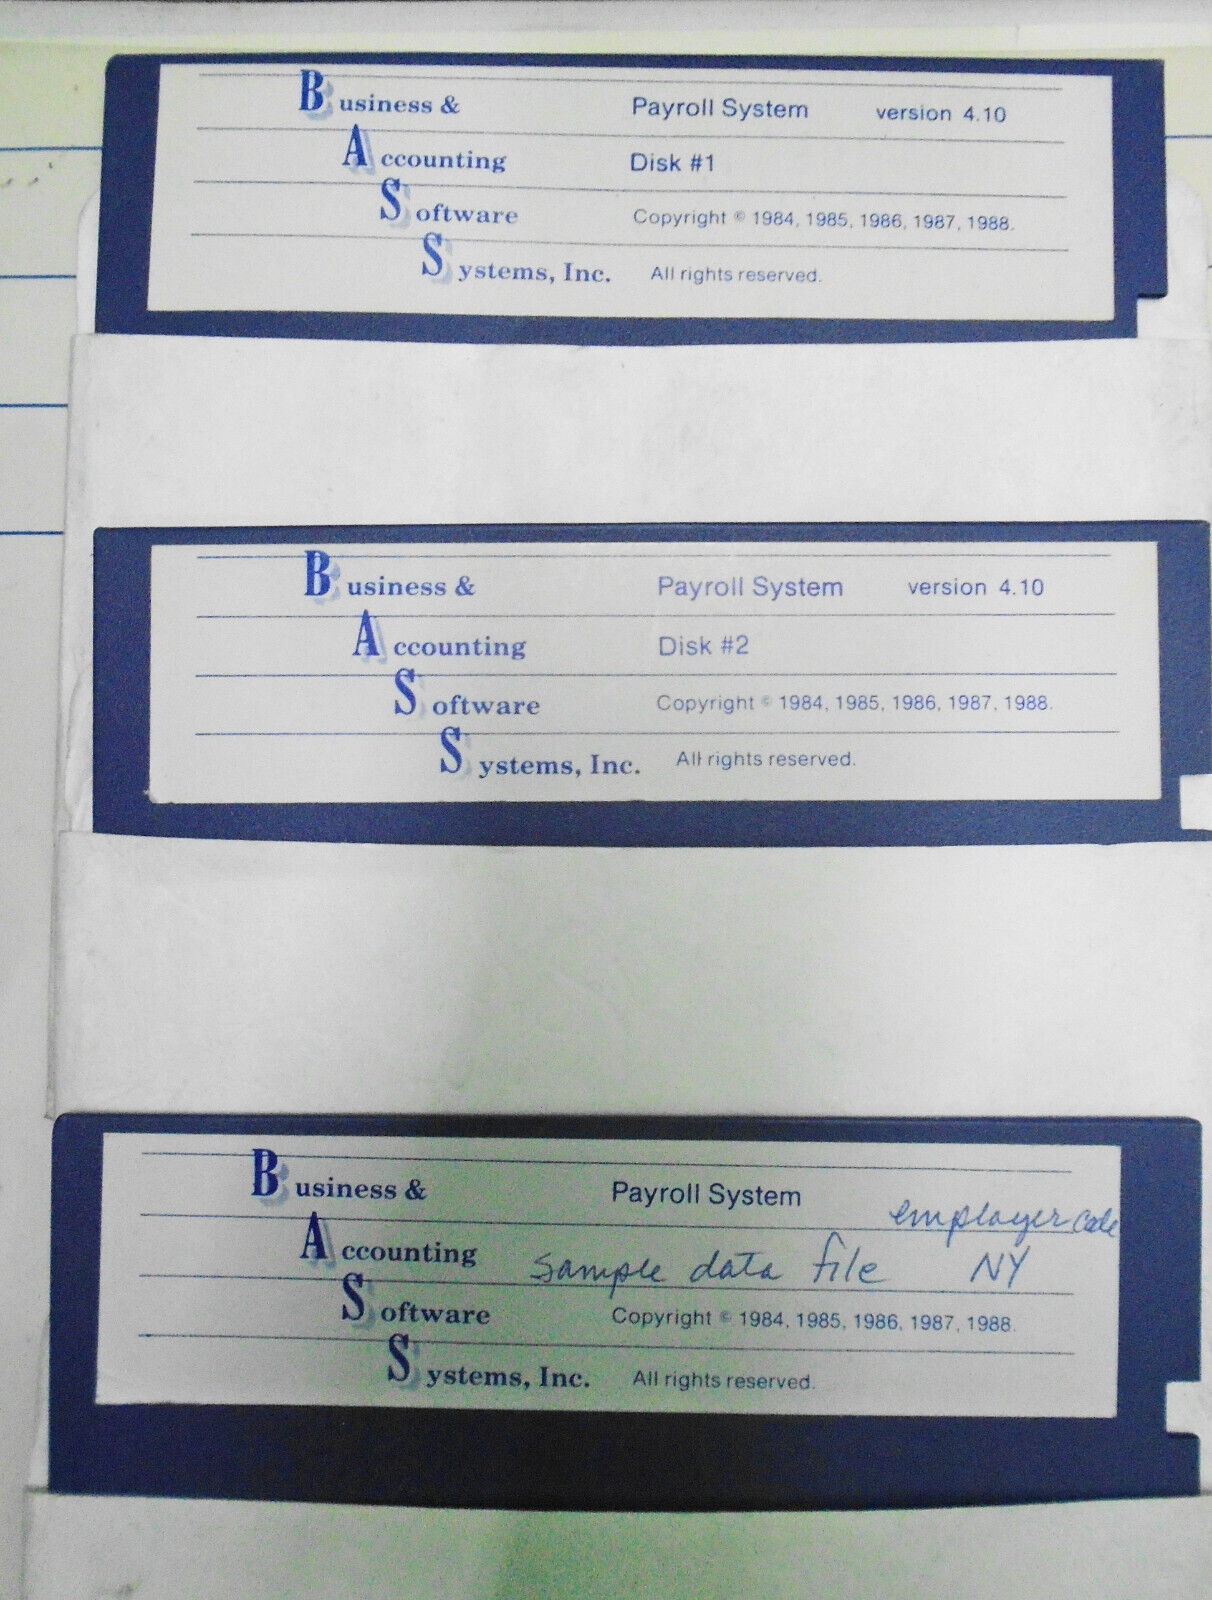 Business & Payroll System version 4.10
Accounting Disk #1
Software Copyright © 1984, 1985, 1986, 1987, 1988.
Systems, Inc. All rights reserved.
Business & Payroll System version 4.10
Accounting Disk #2
Software Copyright © 1984, 1985, 1986, 1987, 1988.
Systems, Inc. All rights reserved.
Business & Payroll System
employer code
Accounting sample data file NY
Software Copyright © 1984, 1985, 1986, 1987, 1988.
Systems, Inc. All rights reserved.